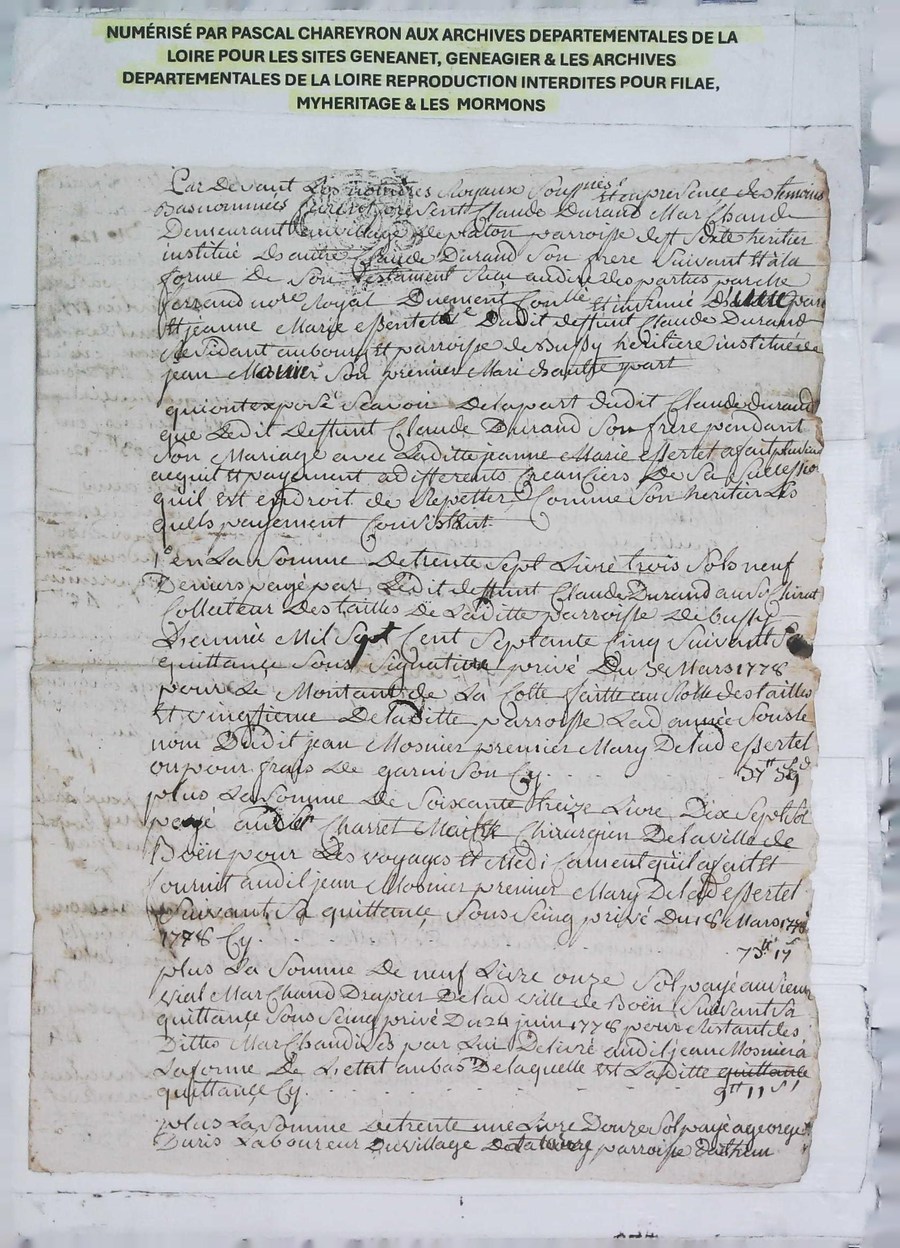 NUMÉRISÉ PAR PASCAL CHAREYRON AUX ARCHIVES DEPARTEMENTALES DE LA
LOIRE POUR LES SITES GENEANET, GENEAGIER & LES ARCHIVES
DEPARTEMENTALES DE LA LOIRE REPRODUCTION INTERDITES POUR FILAE,
MYHERITAGE & LES MORMONS
Par Devant Les nottaires Royaux Sousignés Et en presence des temoins
Bas nommées present Claude Durand Marchand
Demeurant au village de platon parroisse de heritier
institué de autre Claude Durand Son frere Suivant Et à la
forme De Son testament Reçu audit des parties par Me
ferrand nore Royal Duement Conlle Et insinué D'une part
Et jeanne Marie essertel ve Dudit deffunt Claude Durand
Residant au bourg Et parroisse de Bussy heritiere instituée de
jean Mosnier Son premier Mari d'autre part
qui ont exposé Scavoir De la part dudit Claude durand
que Ledit deffunt Claude Durand Son frere pendant
Son Mariage avec Laditte jeanne Marie essertel a fait plusieurs
acquit Et payement a differents Creanciers De Sa
qu'il Est en droit de Repetter Comme Son heritier Les
quels payement Consistent
1° en La Somme De trente Sept Livre trois Sols neuf
Deniers payé par Ledit deffunt Claude Durand au Sr
Collecteur Des tailles De Laditte parroisse De bussy
L'année Mil Sept Cent Septante Cinq Suivant Sa
quittance Sous Signature privé Du Mars 1778
pour Le Montant de La Cotte faitte au Rolle des tailles
Et vingtieme De laditte parroisse Lad année Sous le
nom Dudit jean Mosnier premier Mary De lad essertel
ou pour frais De garnison Cy. 37tt 3s 9d
plus La Somme De Soixante treize Livre Dix Sept Sol
payé au Sr Charret Maitre Chirurgien De la ville de
Boën pour Des voyages Et Medicament qu'il a fait Et
fournit audit jean Mosnier premier Mary De lad essertel
Suivant Sa quittance Sous Seing privé Du 18 Mars 1778
1778 Cy. 73tt 17s
plus La Somme De neuf Livre onze Sol payé au Sieur
vial Marchand Drapier De lad ville de Boën Suivant Sa
quittance Sous Seing privé Du 24 juin 1778 pour Restant des
Dittes Marchandises par Lui Delivré audit jean Mosnier à
La forme De L'etat au bas De laquelle Est Laditte quittance
quittance Cy. 9tt 11s
plus La Somme De trente une Livre Douze Sol payé a george
Duris Laboureur Du village parroisse